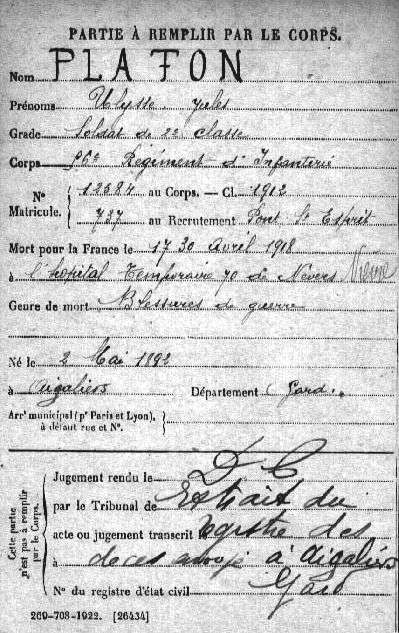 PARTIE À REMPLIR PAR LE CORPS.
Nom PLATON
Prénoms Ulysse Jules
Grade Soldat de 2e classe
Corps 96e Régiment d'Infanterie
N° Matricule. 12684 au Corps. — Cl. 1912
737 au Recrutement Pont St Esprit
Mort pour la France le 17 30 avril 1918
à l'hopital temporaire 70 de Nevers Nièvre
Genre de mort Blessures de guerre
Né le 2 Mai 1892
à Aigaliers Département Gard.
Arrt municipal (pr Paris et Lyon), à défaut rue et N°.
Cette partie n'est pas à remplir par le Corps.
Jugement rendu le D C
par le Tribunal de Extrait du
acte ou jugement transcrit le Registre des
à deces à Aigaliers
N° du registre d'état civil Gard
269-708-1922. [26434]